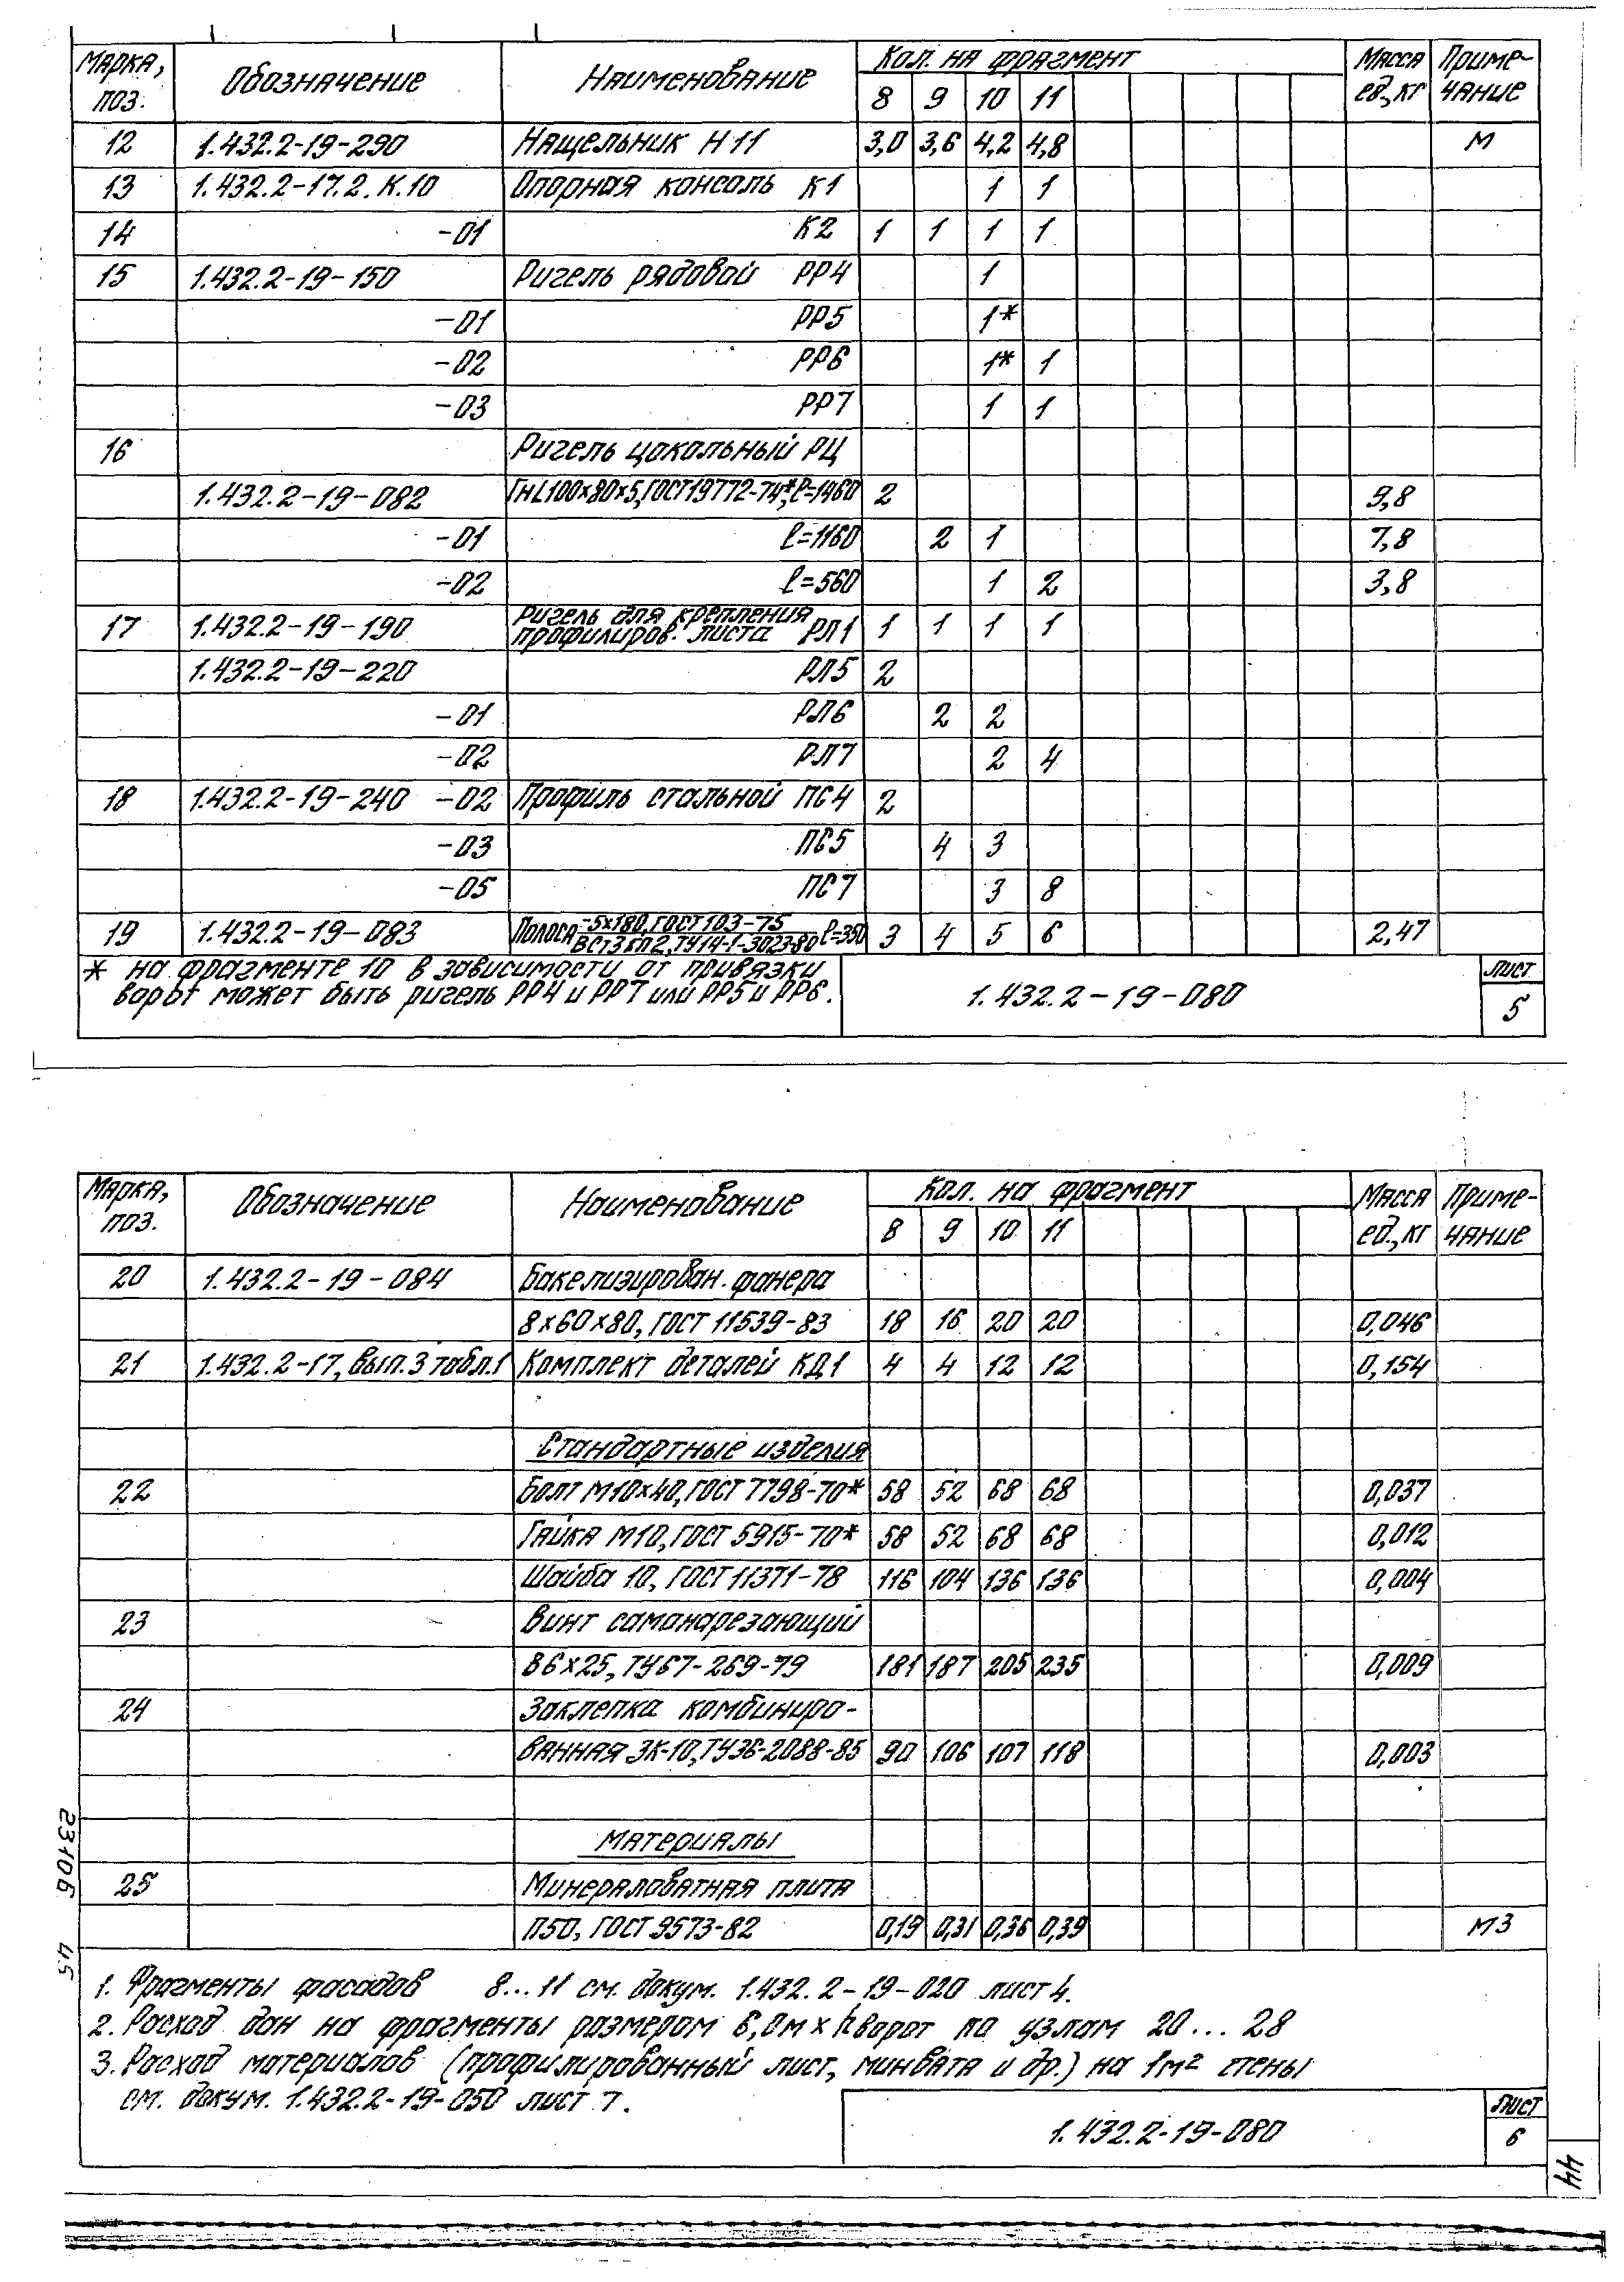 Марка, поз. Обозначение Наименование Кол. на фрагмент Масса ед., кг Примечание
8 9 10 11
12 1.432.2-19-290 Нащельник Н11 3,0 3,6 4,2 4,8 м
13 1.432.2-17.2.К.10 Опорная консоль К1 1 1
14 -01 К2 1 1 1 1
15 1.432.2-19-150 Ригель рядовой РР4 1
-01 РР5 1*
-02 РР6 1* 1
-03 РР7 1 1
16 Ригель цокольный РЦ
1.432.2-19-082 ГН L100×80×5, ГОСТ 19772-74*, ℓ=1460 2 9,8
-01 ℓ=1160 2 1 7,8
-02 ℓ=560 1 2 3,8
17 1.432.2-19-190 Ригель для крепления профилиров. листа РЛ1 1 1 1 1
1.432.2-19-220 РЛ5 2
-01 РЛ6 2 2
-02 РЛ7 2 4
18 1.432.2-19-240 -02 Профиль стальной ПС4 2
-03 ПС5 4 3
-05 ПС7 3 8
19 1.432.2-19-083 Полоса -5×180, ГОСТ 103-75 / ВСт3кп2, ТУ14-1-3023-80 ℓ=350 3 4 5 6 2,47
* на фрагменте 10 в зависимости от привязки
ворот может быть ригель РР4 и РР7 или РР5 и РР6.
1.432.2-19-080
лист
5
Марка, поз. Обозначение Наименование Кол. на фрагмент Масса ед., кг Примечание
8 9 10 11
20 1.432.2-19-084 Бакелизирован. фанера
8×60×80, ГОСТ 11539-83 18 16 20 20 0,046
21 1.432.2-17, вып.3 табл.1 Комплект деталей КД1 4 4 12 12 0,154
Стандартные изделия
22 Болт М10×40, ГОСТ 7798-70* 58 52 68 68 0,037
Гайка М10, ГОСТ 5915-70* 58 52 68 68 0,012
Шайба 10, ГОСТ 11371-78 116 104 136 136 0,004
23 Винт самонарезающий
В6×25, ТУ67-269-79 181 187 205 235 0,009
24 Заклепка комбиниро-
ванная ЗК-10, ТУ36-2088-85 90 106 107 118 0,003
Материалы
25 Минераловатная плита
П50, ГОСТ 9573-82 0,19 0,31 0,36 0,39 м3
1. Фрагменты фасадов 8...11 см. докум. 1.432.2-19-020 лист 4.
2. Расход дан на фрагменты размером 6,0м × hворот по узлам 20...28
3. Расход материалов (профилированный лист, минвата и др.) на 1м² стены
см. докум. 1.432.2-19-050 лист 7.
1.432.2-19-080
лист
6
23106 45
44